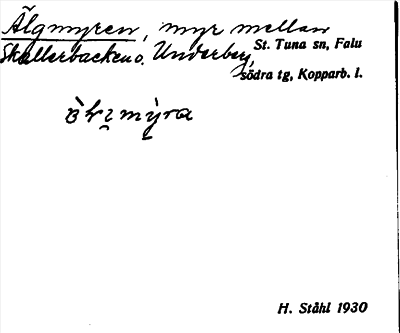 Älgmyren, myr mellan
Skallerbacken o. Underberg,
St. Tuna sn, Falu
södra tg, Kopparb. l.
H. Ståhl 1930